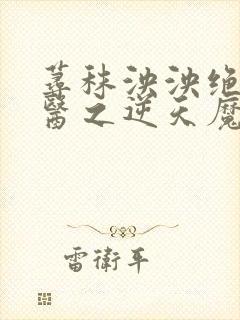 蕁秣泱泱绝
醫之逆天魔
雷衛平